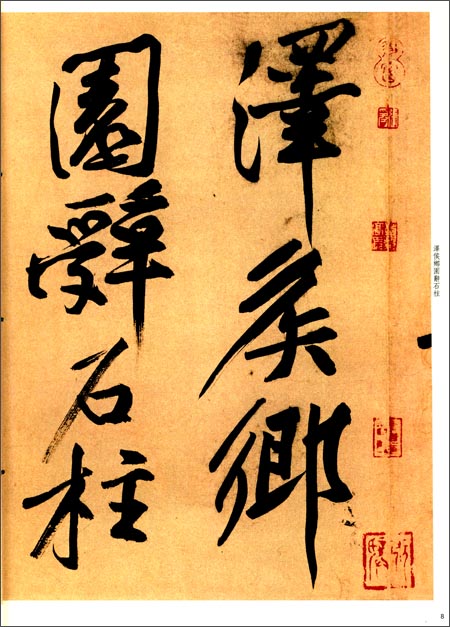 澤矦鄉
園辤石柱
澤侯鄉園辭石柱
8